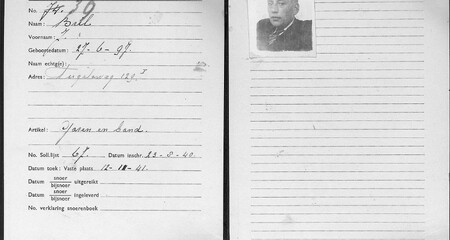 No. 74. 39
Naam: Bill
Voornaam: J.
Geboortedatum: 27-6-97.
Naam echtg(e):
Adres: 129 I
Artikel: Garen en band.
No. Soll.lijst 67. Datum inschr. 23-8-40.
Datum toek: Vaste plaats. 12-12-41.
Datum snoer
bijsnoer uitgereikt
Datum snoer
bijsnoer ingeleverd
No. verklaring snoerenboek